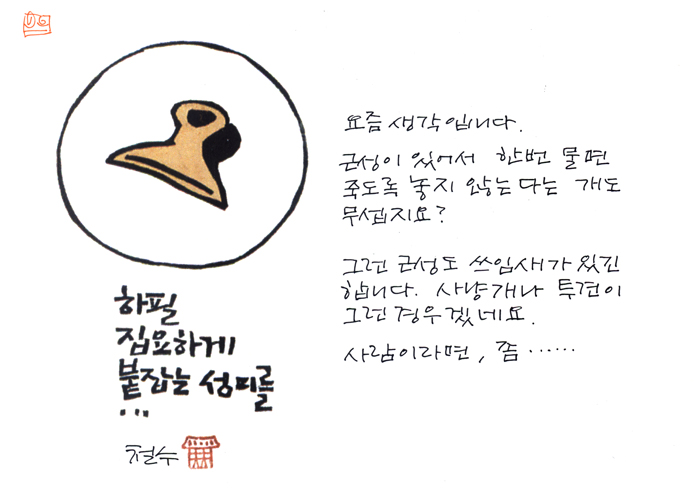 하필
집요하게
붙잡는 성미를
...
철수
요즘 생각입니다.
근성이 있어서 한번 물면
죽도록 놓지 않는다는 개도
무섭지요?
그런 근성도 쓰임새가 있긴
합니다. 사냥개나 투견이
그런 경우겠네요.
사람이라면, 좀 ......